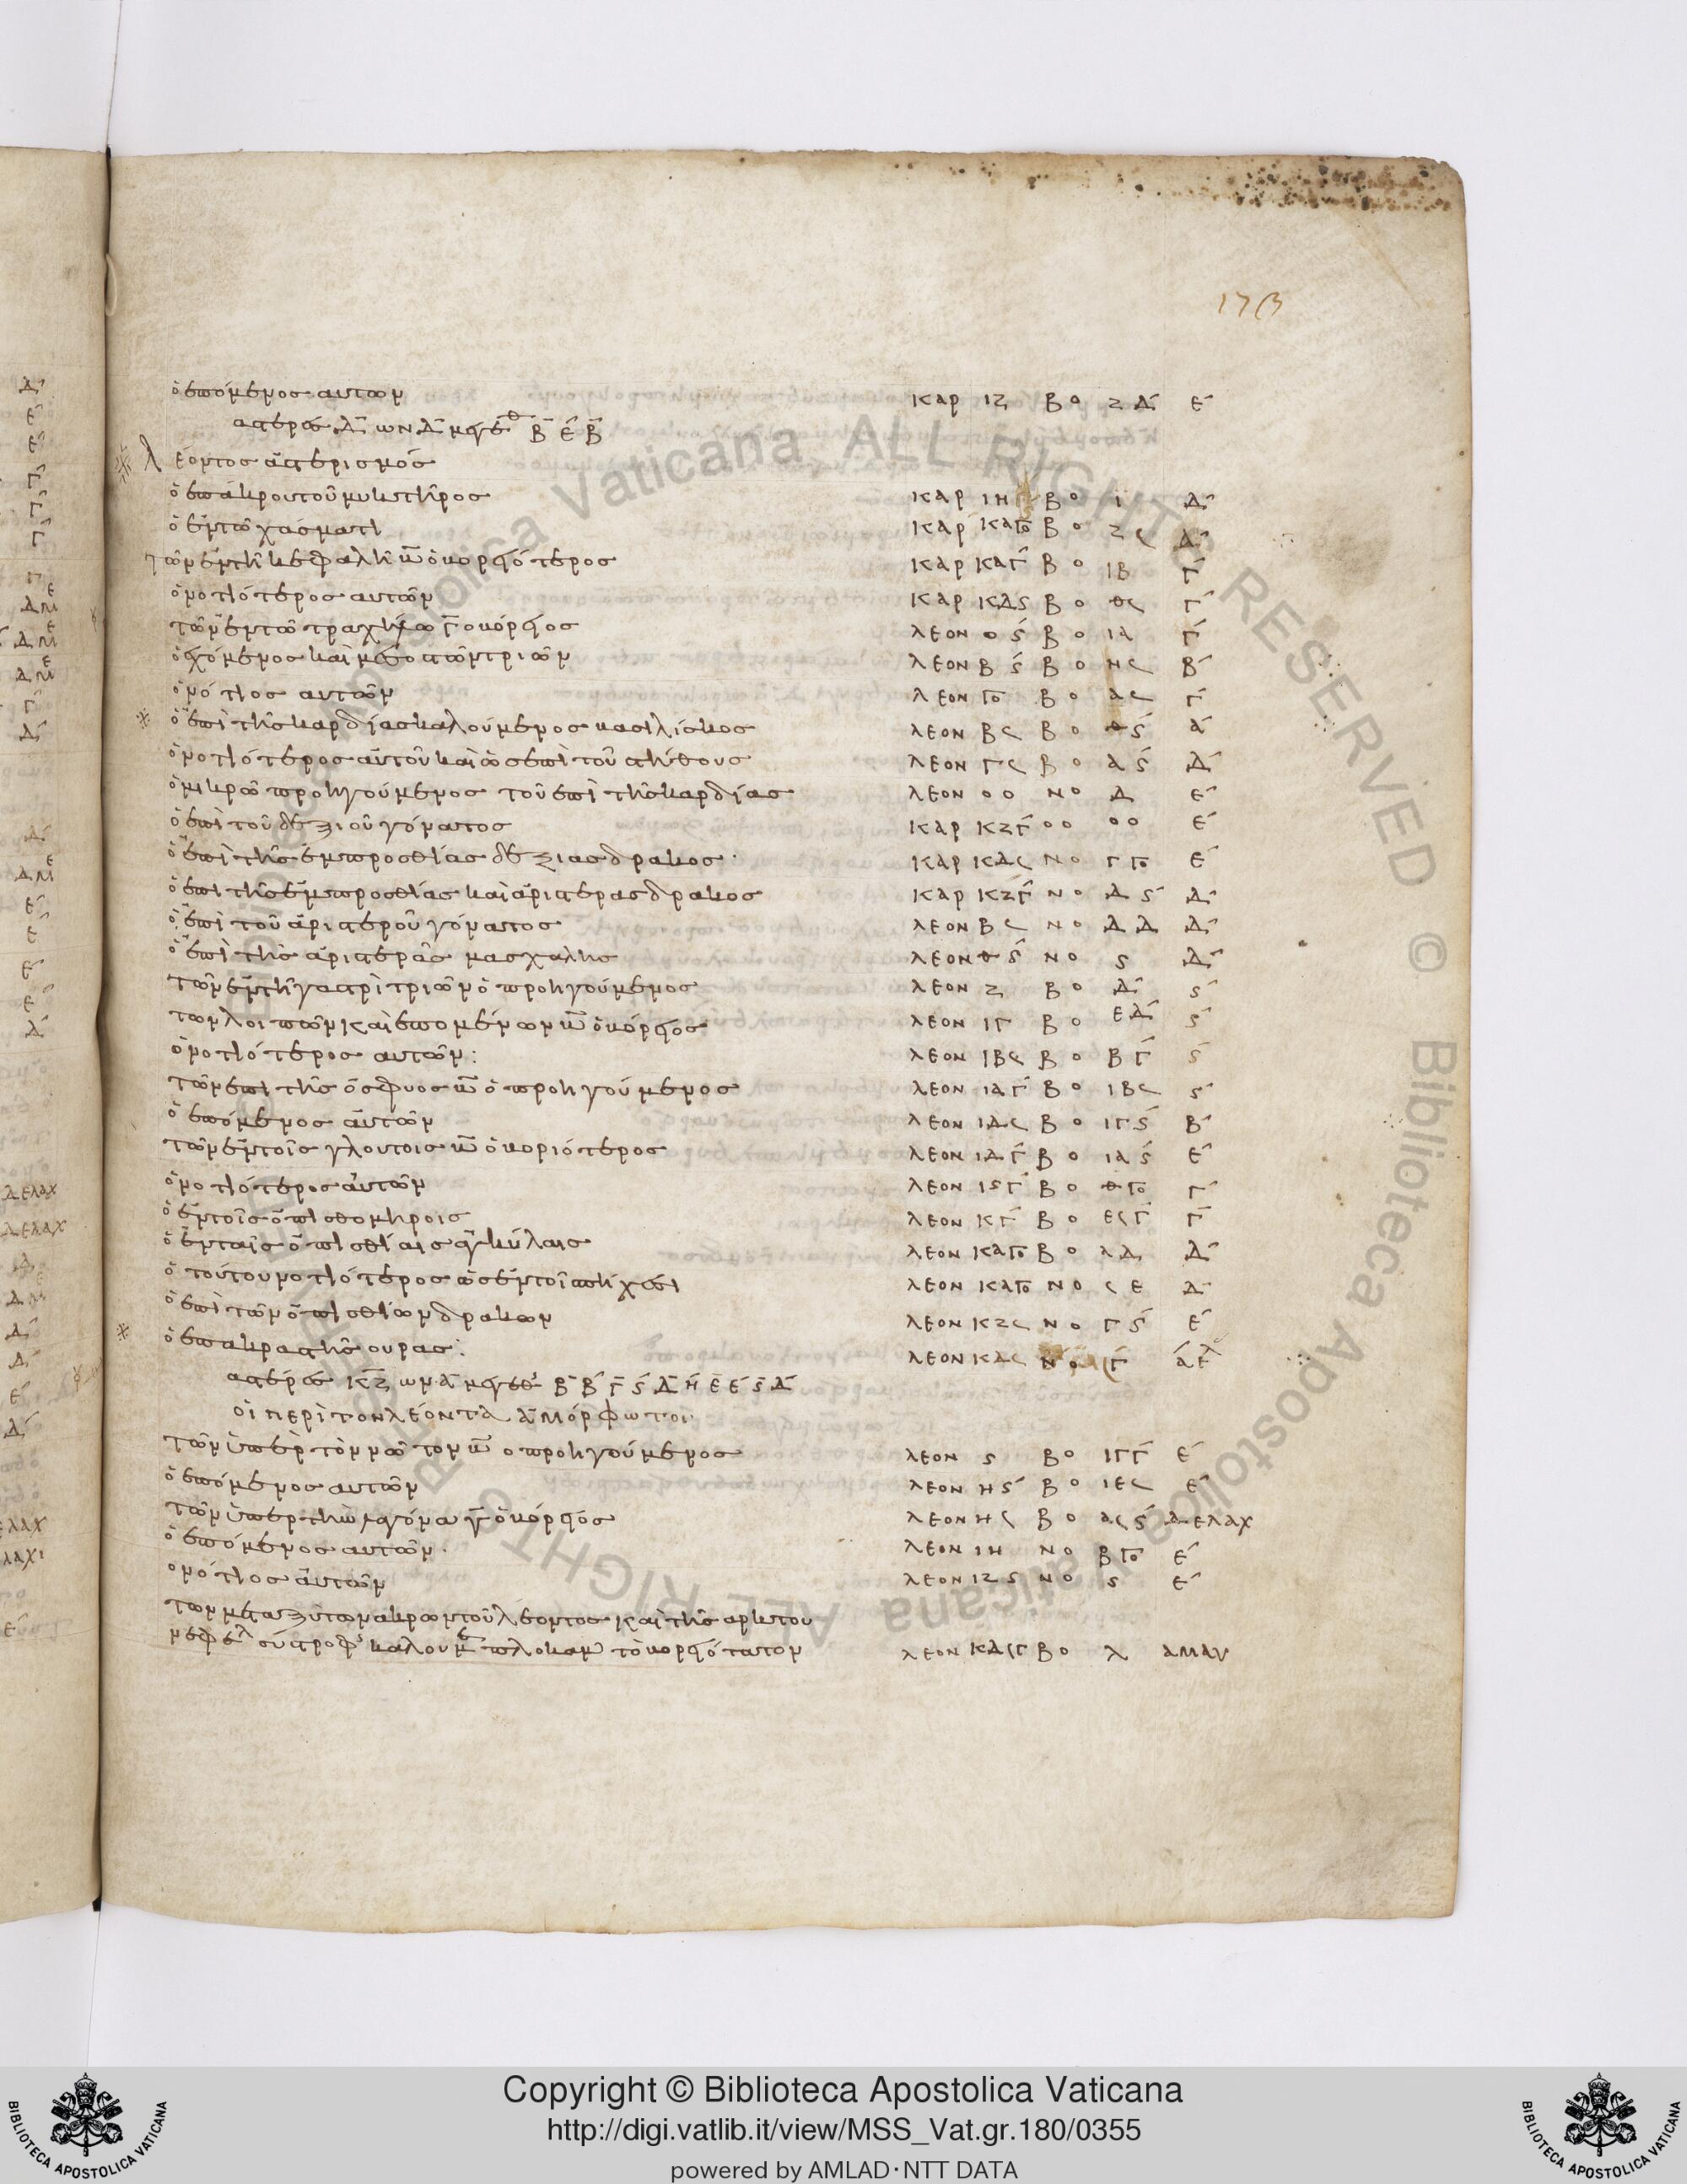 173
ὁ ἑπόμενος αυτων ΚΑΡ ΙΖ Β Ο Ζ Δ´ Ε´
αστέρες Δ ων Δ μεγέθ Β Ε Β
λέοντος ἀστερισμός
ὁ ἐπ άκρου τοῦ μυκτῆρος ΚΑΡ ΙΗ Β Ο Ι Δ´
ὁ ἐν τῶ χάσματι ΚΑΡ ΚΑΓο Β Ο Ζ ς Δ´
τῶν ἐν τῆ κεφαλῆ β ὁ βορειότερος ΚΑΡ ΚΑΓ´ Β Ο ΙΒ Γ´
ὁ νοτιότερος αυτῶν ΚΑΡ ΚΔϛ Β Ο Θς Γ´
τῶν ἐν τῶ τραχήλω Γ ο βόρειος ΛΕΟΝ Ο ϛ´ Β Ο ΙΑ Γ´
ὁ ἐχόμενος καὶ μέσος τῶν τριῶν ΛΕΟΝ Β ϛ´ Β Ο Ης Β´
ὁ νότιος αυτῶν ΛΕΟΝ Γο Β Ο Ας Γ´
ὁ ἐπὶ τῆς καρδίας καλούμενος βασιλίσκος ΛΕΟΝ Βς Β Ο Οϛ´ Α´
ὁ νοτιότερος αὐτοῦ καὶ ὡς ἐπὶ τοῦ στήθους ΛΕΟΝ Γς Β Ο Α ϛ´ Δ´
ὁ μικρῶ προηγούμενος τοῦ ἐπὶ τῆς καρδίας ΛΕΟΝ Ο Ο Ν Ο Δ Ε´
ὁ ἐπὶ τοῦ δεξιοῦ γόνατος ΚΑΡ ΚΖΓ´ Ο Ο Ο Ο Ε´
ὁ ἐπὶ τῆς ἐμπροσθίας δεξιας δρακος ΚΑΡ ΚΔς Ν Ο Γ Γο Ε´
ὁ ἐπι τῆς ἐμπροσθίας καὶ ἀριστερας δρακος ΚΑΡ ΚΖΓ´ Ν Ο Δ ϛ´ Δ´
ὁ ἐπὶ τοῦ ἀριστεροῦ γόνατος ΛΕΟΝ Βς Ν Ο Δ Δ Δ´
ὁ ἐπὶ τῆς ἀριστερᾶς μασχάλης ΛΕΟΝ Θ ϛ´ Ν Ο ϛ Δ´
τῶν ἐν τῆ γαστρὶ τριῶν ὁ προηγούμενος ΛΕΟΝ Ζ Β Ο Δ´ ϛ´
των λοιπῶν καὶ ἑπομένων β ὁ βόρειος ΛΕΟΝ ΙΓ Β Ο Ε Δ´ ϛ´
ὁ νοτιότερος αυτῶν: ΛΕΟΝ ΙΒς Β Ο Β Γ´ ϛ´
τῶν ἐπι τῆς ὀσφυος β ὁ προηγούμενος ΛΕΟΝ ΙΑΓ´ Β Ο ΙΒς ϛ´
ὁ ἑπόμενος αὐτῶν ΛΕΟΝ ΙΔς Β Ο ΙΓϛ´ Β´
τῶν ἐν τοῖς γλουτοις β ὁ βοριότερος ΛΕΟΝ ΙΔΓ´ Β Ο ΙΑ ϛ´ Ε´
ὁ νοτιότερος ἀυτῶν ΛΕΟΝ ΙϛΓ´ Β Ο ΘΓο Γ´
ὁ ἐν τοῖς ὀπισθομηροις ΛΕΟΝ ΚΓ´ Β Ο ΕςΓ´ Γ´
ὁ ἐν ταῖς ὀπισθίαις ἀγκύλαις ΛΕΟΝ ΚΑΓο Β Ο ΑΔ Δ´
ὁ τούτου νοτιότερος ὡς ἐν τοῖς πήχεσι ΛΕΟΝ ΚΑΓο Ν Ο ς Ε Δ´
ὁ ἐπὶ τῶν ὀπισθίων δρακων ΛΕΟΝ ΚΖς Ν Ο Γ ϛ´ Ε´
ὁ ἐπ ακρας τῆς ουρας: ΛΕΟΝ ΚΔς Ν Ο ςΓ´ Α´ Ελ
αστέρες ΚΖ ων Α μεγέθ Β Β´ Γ ϛ´ Δ Η Ε Ε´ ϛ Δ´
οἱ περὶ τον λέοντα ἀμόρφωτοι
τῶν ὑπὲρ τὸν νῶτον β ο προηγούμενος ΛΕΟΝ ϛ Β Ο ΙΓΓ´ Ε´
ὁ ἑπόμενος αυτῶν ΛΕΟΝ Ηϛ´ Β Ο ΙΕς Ε´
τῶν ὑπερ τὴν λαγόνα Γ ὁ βόρειος ΛΕΟΝ Ης Β Ο Ας ϛ´ Δ ΕΛΑΧ
ὁ ἑπόμενος αυτῶν ΛΕΟΝ ΙΗ Ν Ο Β Γο Ε´
ο νότιος αὐτῶν ΛΕΟΝ ΙΖ ϛ Ν Ο ϛ Ε´
των μεταξὺ των ακρων τοῦ λέοντος καὶ τῆς αρκτου
νεφελ συστροφ καλουμ πλοκαμ τὸ βορειότατον ΛΕΟΝ ΚΔςΓ Β Ο Λ ΑΜΑΥ
ALL RIGHTS RESERVED © Biblioteca Apostolica Vaticana
Copyright © Biblioteca Apostolica Vaticana
http://digi.vatlib.it/view/MSS_Vat.gr.180/0355
powered by AMLAD·NTT DATA
BIBLIOTECA APOSTOLICA VATICANA
BIBLIOTECA APOSTOLICA VATICANA